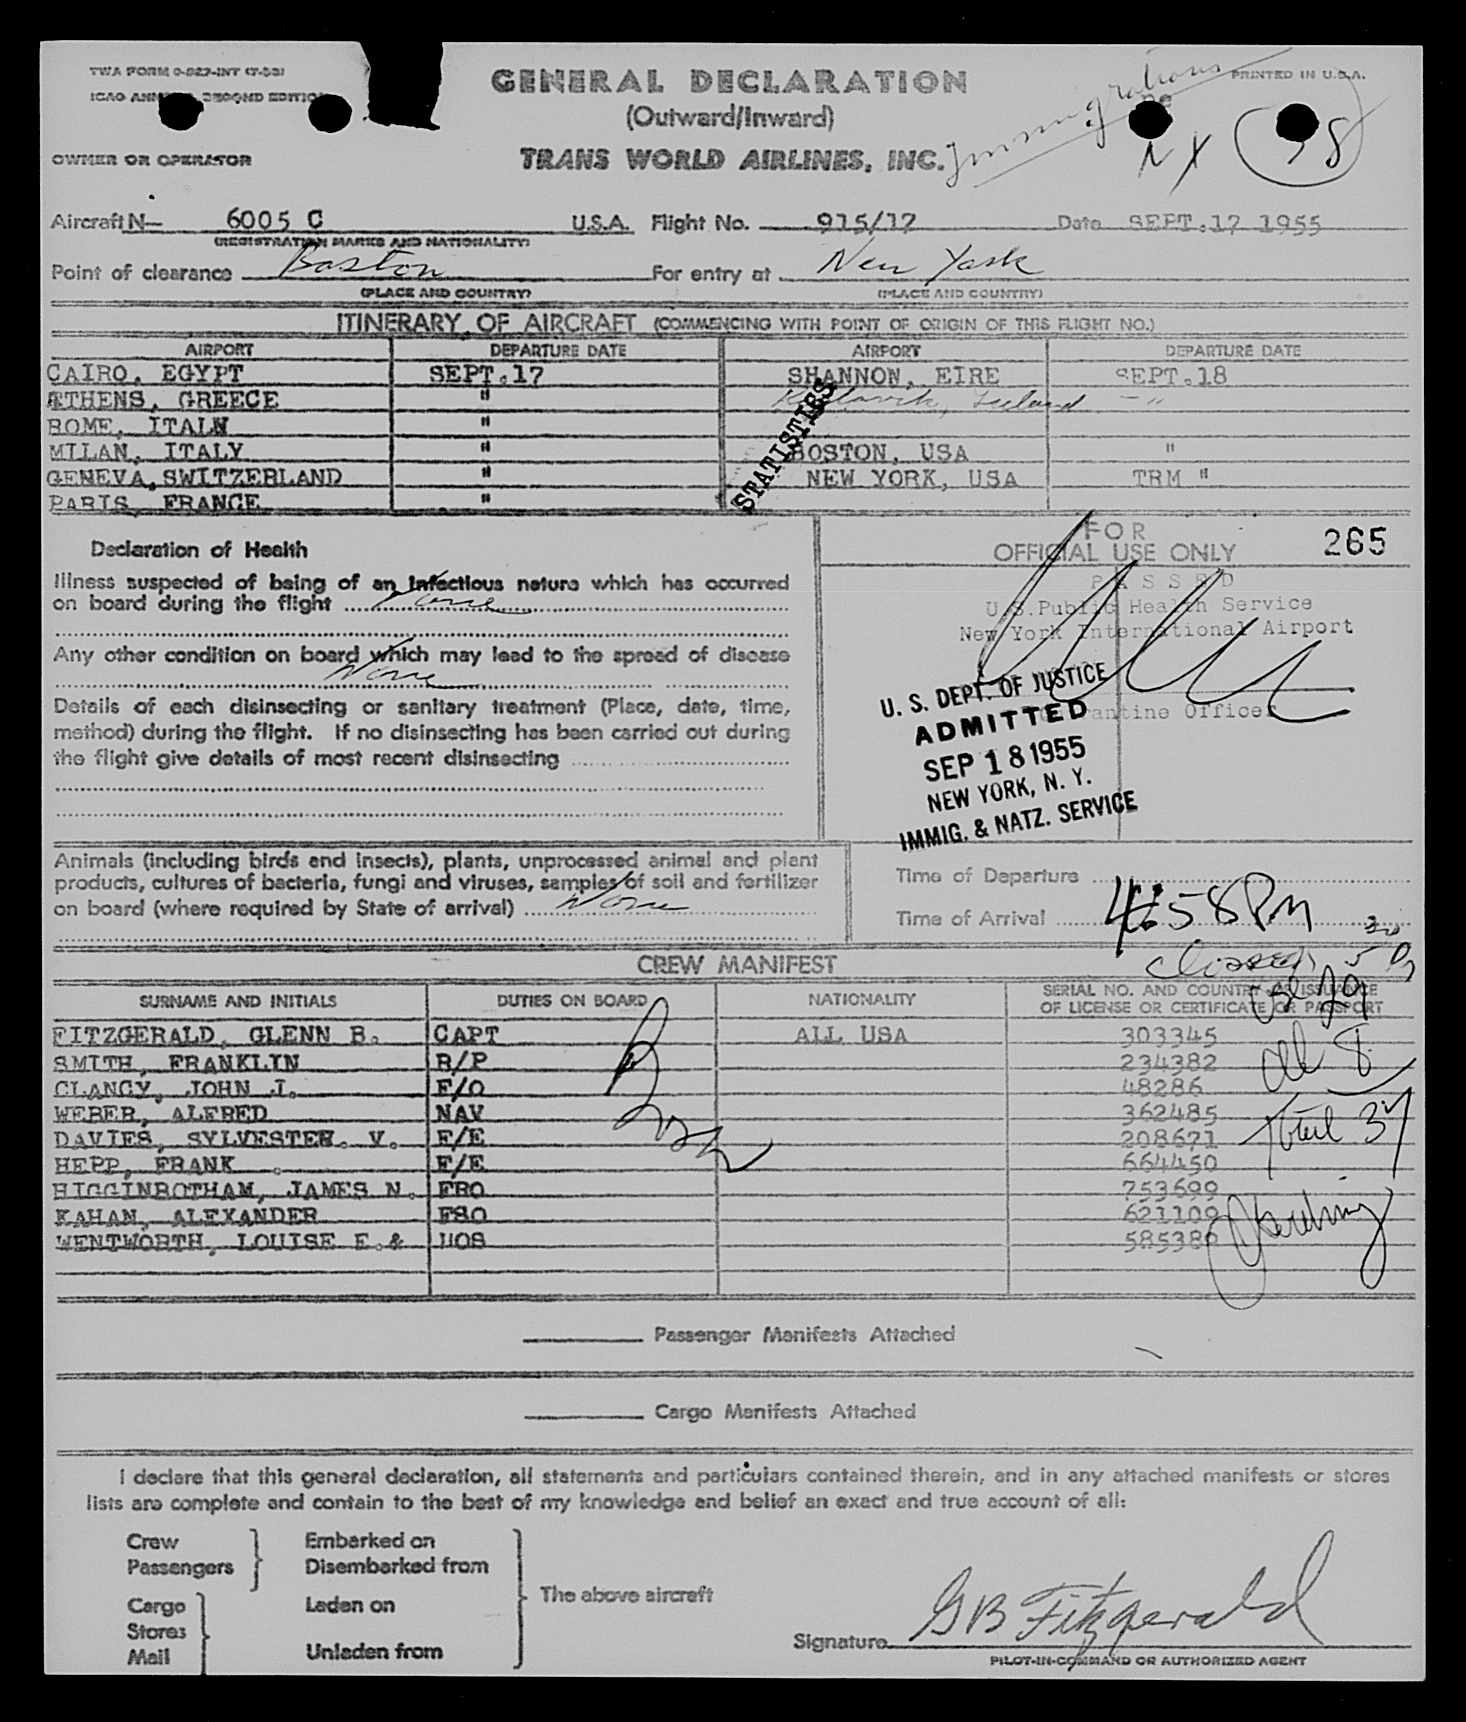 TWA FORM 0-827-INT (7-53)
PRINTED IN U.S.A.
GENERAL DECLARATION
Immigrations
SECOND EDITION
(Outward/Inward)
OWNER OR OPERATOR
TRANS WORLD AIRLINES, INC.
Aircraft N— 6005 C U.S.A. Flight No. 915/17 Date SEPT.17 1955
(REGISTRATION MARKS AND NATIONALITY)
Point of clearance Boston For entry at New York
(PLACE AND COUNTRY) (PLACE AND COUNTRY)
ITINERARY OF AIRCRAFT (COMMENCING WITH POINT OF ORIGIN OF THIS FLIGHT NO.)
AIRPORT DEPARTURE DATE AIRPORT DEPARTURE DATE
CAIRO, EGYPT SEPT.17 SHANNON, EIRE SEPT.18
ATHENS, GREECE " Keflavik, Iceland — "
ROME, ITALY "
MILAN, ITALY " BOSTON, USA "
GENEVA,SWITZERLAND " NEW YORK, USA TRM "
PARIS, FRANCE "
STATISTICS
FOR
OFFICIAL USE ONLY 265
PASSED
U.S.Public Health Service
New York International Airport
Quarantine Officer
U. S. DEPT. OF JUSTICE
ADMITTED
SEP 18 1955
NEW YORK, N. Y.
IMMIG. & NATZ. SERVICE
Declaration of Health
Illness suspected of being of an infectious nature which has occurred
on board during the flight None
Any other condition on board which may lead to the spread of disease
None
Details of each disinsecting or sanitary treatment (Place, date, time,
method) during the flight. If no disinsecting has been carried out during
the flight give details of most recent disinsecting
Animals (including birds and insects), plants, unprocessed animal and plant
products, cultures of bacteria, fungi and viruses, samples of soil and fertilizer
on board (where required by State of arrival) None
Time of Departure
Time of Arrival 4:58 PM
closed 5
CREW MANIFEST
SURNAME AND INITIALS DUTIES ON BOARD NATIONALITY SERIAL NO. AND COUNTRY OF ISSUANCE
OF LICENSE OR CERTIFICATE OR PASSPORT
FITZGERALD, GLENN B. CAPT ALL USA 303345
SMITH, FRANKLIN R/P 234382
CLANCY, JOHN J. F/O 48286
WEBER, ALFRED NAV 362485
DAVIES, SYLVESTER. V. F/E 208671
HEPP, FRANK . F/E 664450
HIGGINBOTHAM, JAMES N. FRO 753699
KAHAN, ALEXANDER FSO 621109
WENTWORTH, LOUISE E.& HOS 585380
Total 37
Passenger Manifests Attached
Cargo Manifests Attached
I declare that this general declaration, all statements and particulars contained therein, and in any attached manifests or stores
lists are complete and contain to the best of my knowledge and belief an exact and true account of all:
Crew Embarked on
Passengers Disembarked from
The above aircraft
Cargo Laden on
Stores
Mail Unladen from
Signature GB Fitzgerald
PILOT-IN-COMMAND OR AUTHORIZED AGENT